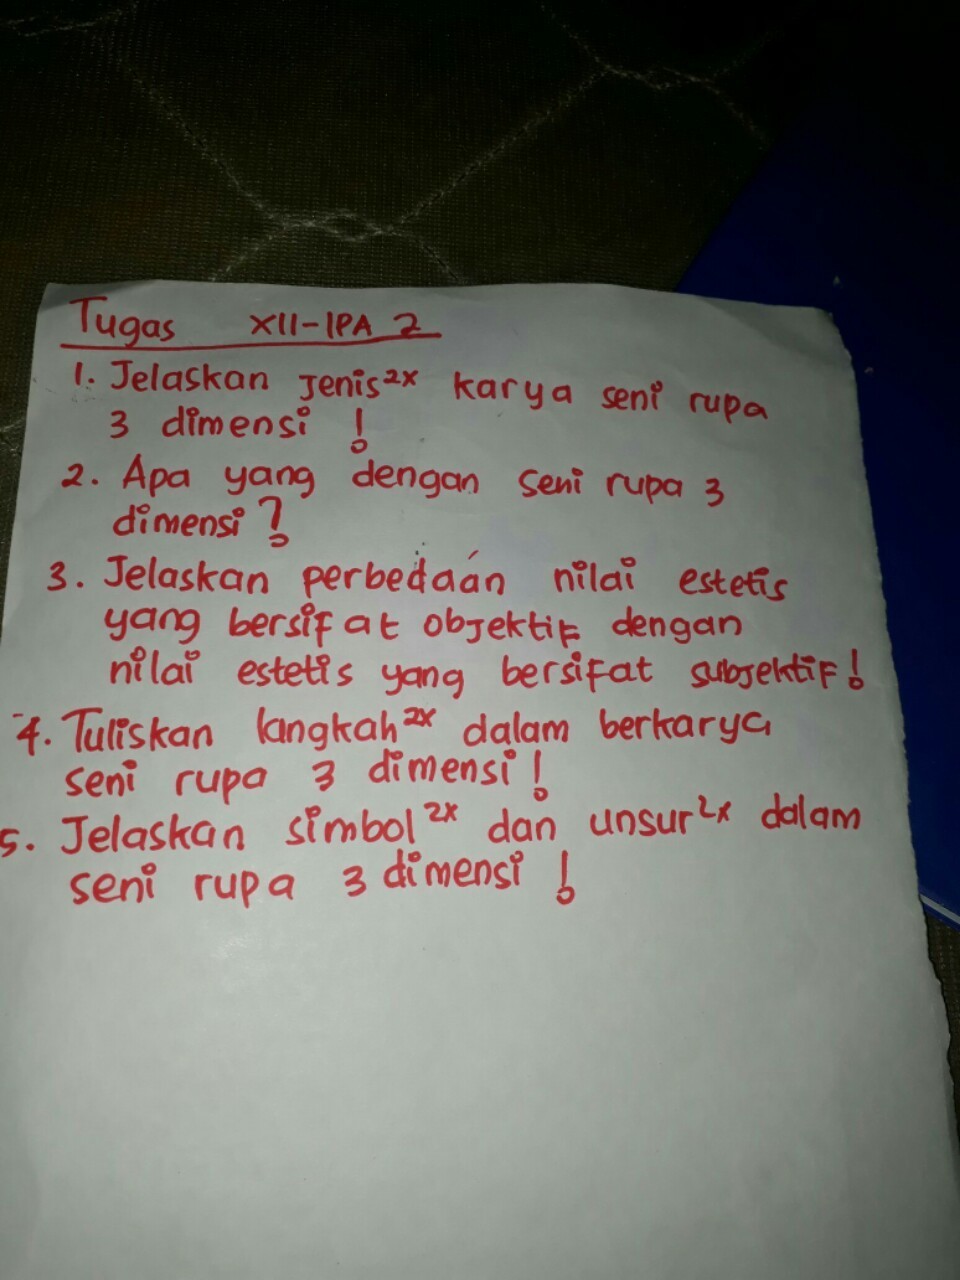 Tugas XII-IPA 2
1. Jelaskan Jenis2x karya seni rupa
3 dimensi!
2. Apa yang dengan seni rupa 3
dimensi?
3. Jelaskan perbedaan nilai estetis
yang bersifat objektif dengan
nilai estetis yang bersifat subjektif!
4. Tuliskan langkah2x dalam berkarya
seni rupa 3 dimensi!
5. Jelaskan simbol2x dan unsur2x dalam
seni rupa 3 dimensi!